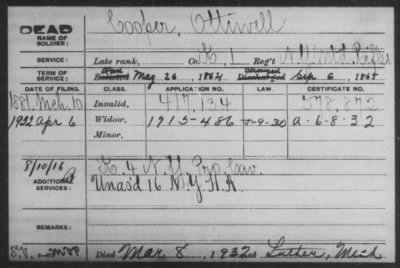 DEAD
NAME OF SOLDIER: Cooper, Ottiwell
SERVICE: Late rank, Co. K, 1 Reg't N.Y. Mtd. Rifles
TERM OF SERVICE: Enlisted May 26, 1864 Discharged Sep 6, 1865
DATE OF FILING. CLASS. APPLICATION NO. LAW. CERTIFICATE NO.
1881 Mch. 10 Invalid, 417,134 578,872
1932 Apr 6 Widow, 1715-486 5-9-30 A-6-8-32
Minor,
8/10/16 K. 4 N.Y. Pro. Cav.
ADDITIONAL SERVICES: Unas'd 16 N.Y. H.A.
REMARKS:
Died Mar 8, 1932, at Luther, Mich